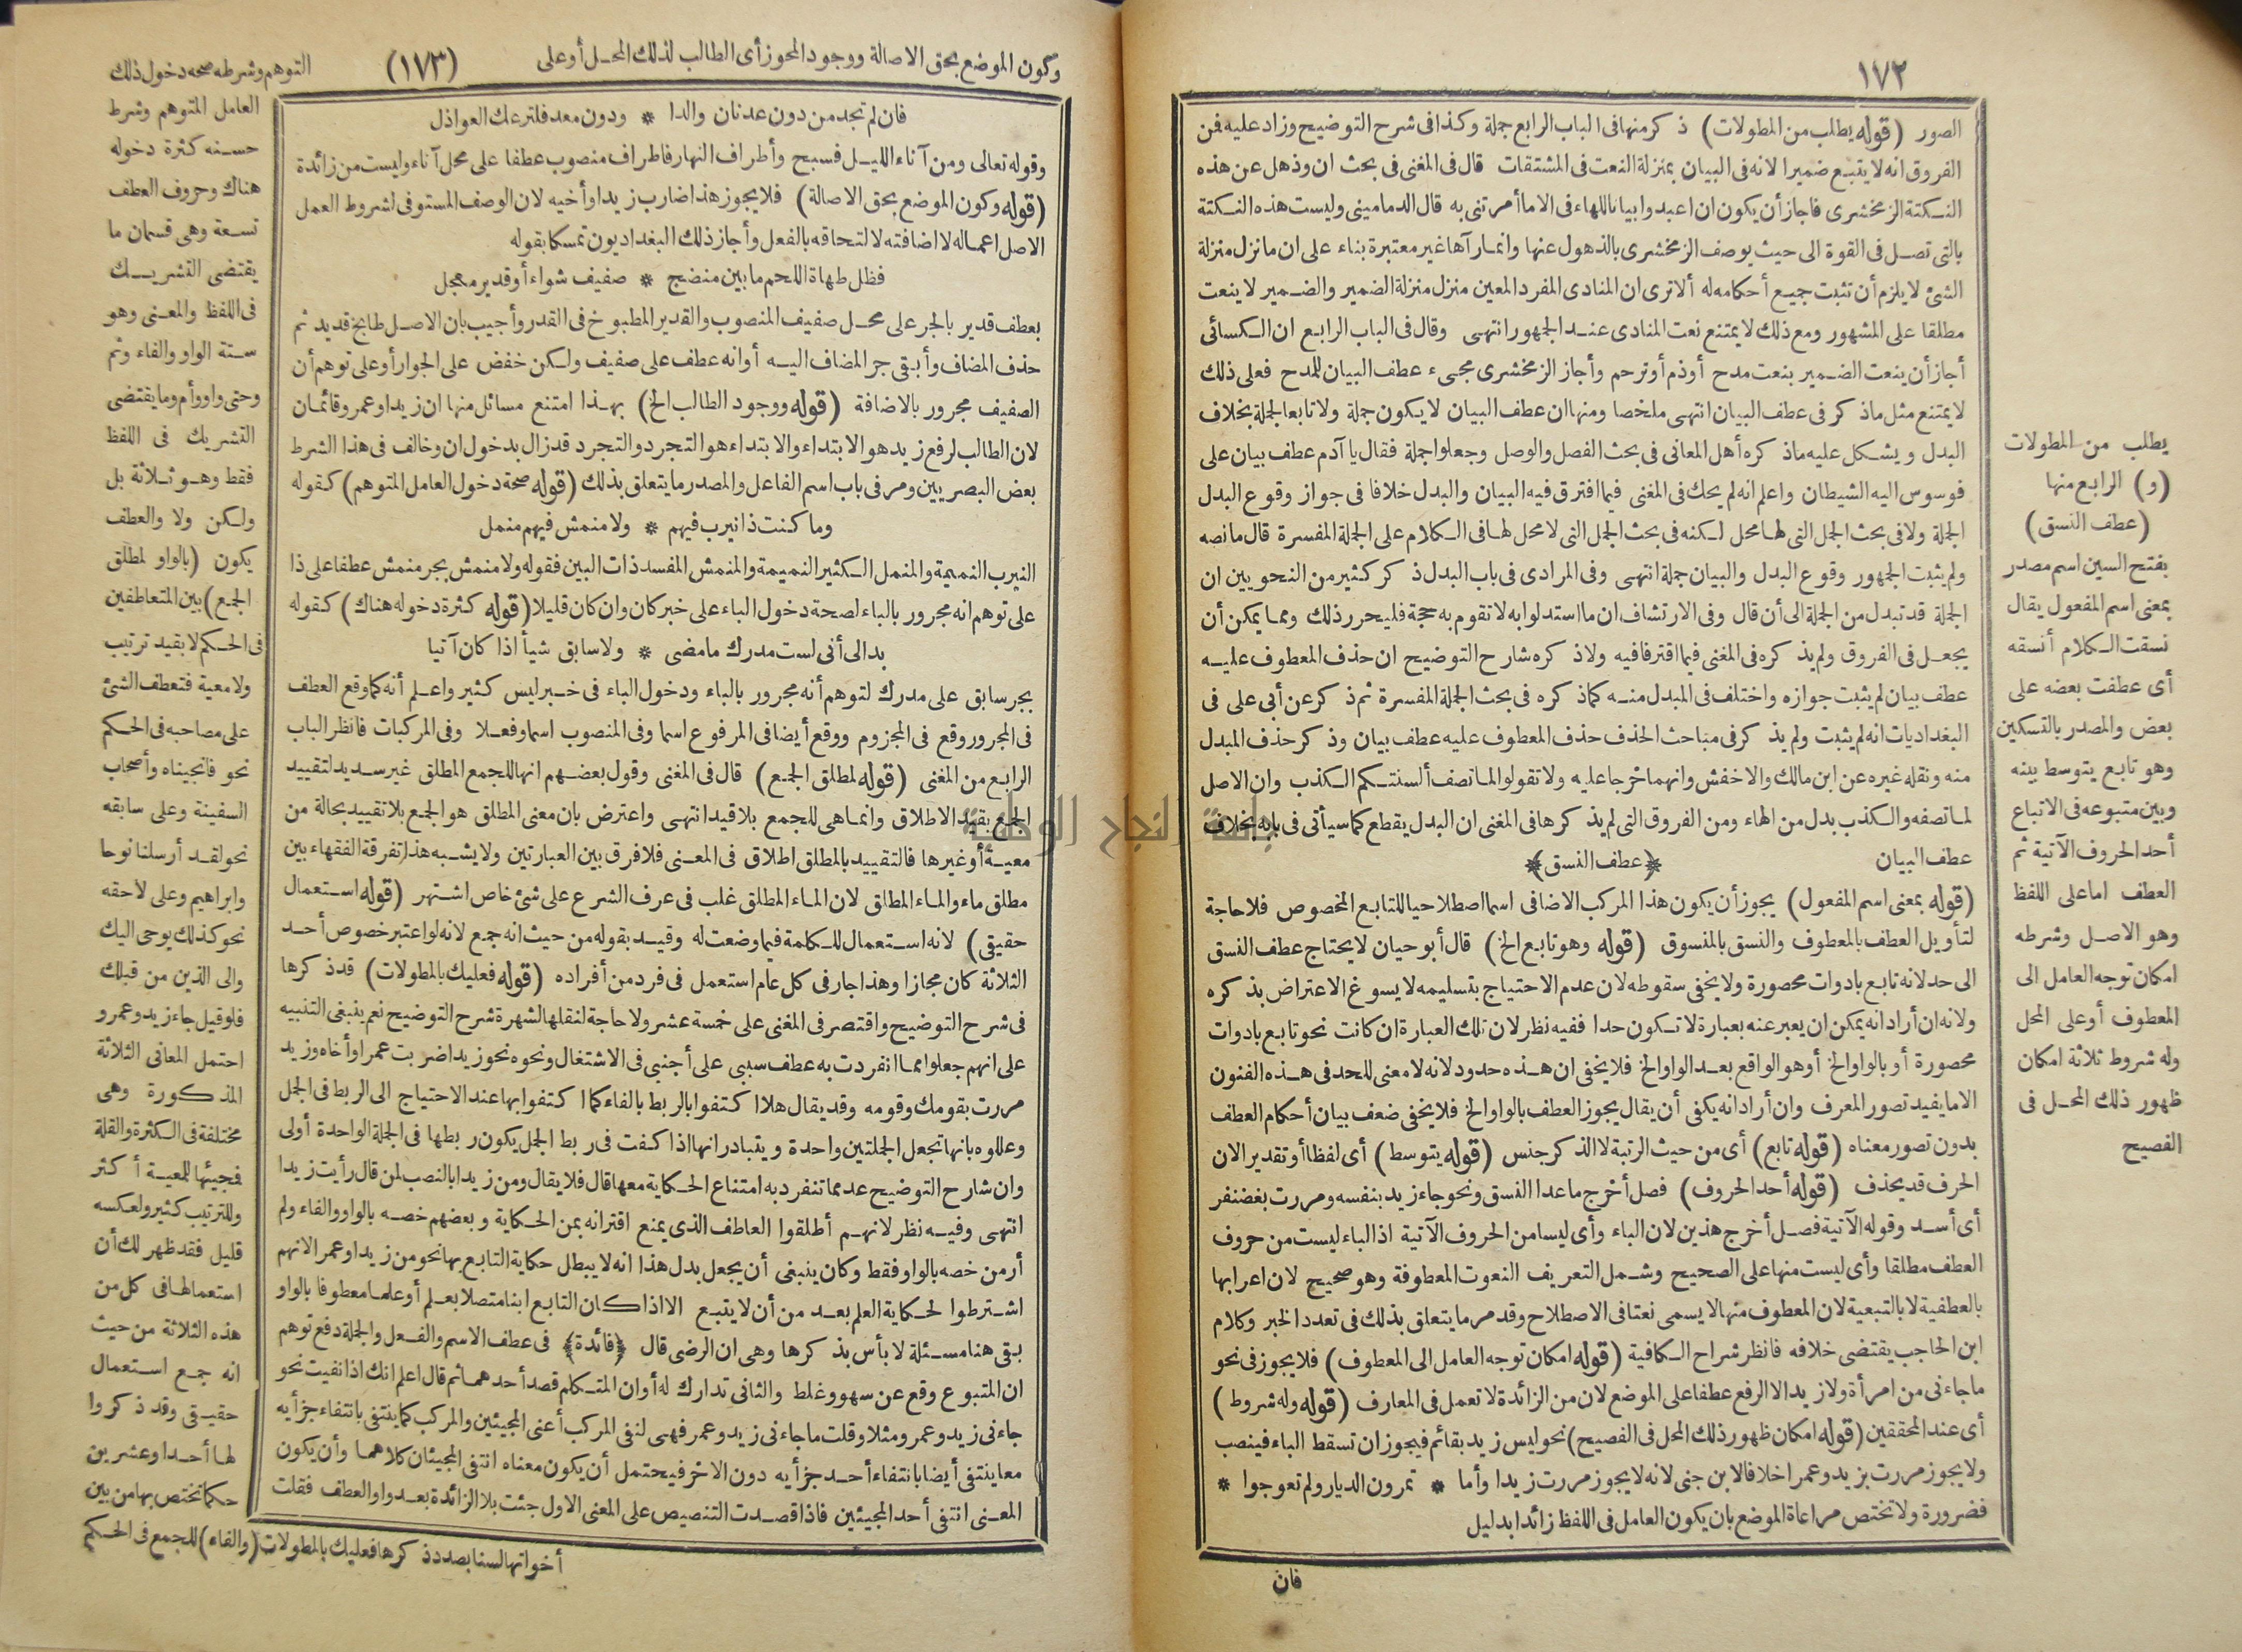 ١٧٢
الصور (قوله يطلب من المطولات) ذكر منها فى الباب الرابع جملة وكذا فى شرح التوضيح وزاد عليه فن
الفروق انه لا يتبع ضميرا لانه فى البيان بمنزلة النعت فى المشتقات قال فى المغنى فى بحث ان وذهل عن هذه
النكتة الزمخشرى فاجاز أن يكون ان اعبدوا بيانا للهاء فى الاما أمرتنى به قال الدمامينى وليست هذه النكتة
بالتى تصل فى القوة الى حيث يوصف الزمخشرى بالذهول عنها وانما رآها غير معتبرة بناء على ان ما نزل منزلة
الشئ لا يلزم أن تثبت جميع أحكامه له ألا ترى ان المنادى المفرد المعين منزل منزلة الضمير والضمير لا ينعت
مطلقا على المشهور ومع ذلك لا يمتنع نعت المنادى عند الجمهور انتهى وقال فى الباب الرابع ان الكسائى
أجاز أن ينعت الضمير بنعت مدح أو ذم أو ترحم وأجاز الزمخشرى مجىء عطف البيان للمدح فعلى ذلك
لا يمتنع مثل ما ذكر فى عطف البيان انتهى ملخصا ومنها ان عطف البيان لا يكون جملة ولا تابعا لجملة بخلاف
البدل ويشكل عليه ما ذكره أهل المعانى فى بحث الفصل والوصل وجعلوا جملة فقال يا آدم عطف بيان على
فوسوس اليه الشيطان واعلم انه لم يحك فى المغنى فيما افترق فيه البيان والبدل خلافا فى جواز وقوع البدل
الجملة ولا فى بحث الجمل التى لها محل لكنه فى بحث الجمل التى لا محل لها فى الكلام على الجملة المفسرة قال ما نصه
ولم يثبت الجمهور وقوع البدل والبيان جملة انتهى وفى المرادى فى باب البدل ذكر كثير من النحويين ان
الجملة قد تبدل من الجملة الى أن قال وفى الارتشاف ان ما استدلوا به لا تقوم به حجة فليحرر ذلك ومما يمكن أن
يجعل فى الفروق ولم يذكره فى المغنى فيما افترقا فيه ولا ذكره شارح التوضيح ان حذف المعطوف عليه
عطف بيان لم يثبت جوازه واختلف فى المبدل منه كما ذكره فى بحث الجملة المفسرة ثم ذكر عن أبى على فى
البغداديات انه لم يثبت ولم يذكر فى مباحث الحذف حذف المعطوف عليه عطف بيان وذكر حذف المبدل
منه ونقله غيره عن ابن مالك والاخفش وانهما خرجا عليه ولا تقولوا لما تصف ألسنتكم الكذب وان الاصل
لما تصفه والكذب بدل من الهاء ومن الفروق التى لم يذكرها فى المغنى ان البدل يقطع كما سيأتى فى بابه بخلاف
عطف البيان ﴿عطف النسق﴾
(قوله بمعنى اسم المفعول) يجوز أن يكون هذا المركب الاضافى اسما اصطلاحيا للتابع المخصوص فلا حاجة
لتأويل العطف بالمعطوف والنسق بالمنسوق (قوله وهو تابع الخ) قال أبو حيان لا يحتاج عطف النسق
الى حد لانه تابع بادوات محصورة ولا يخفى سقوطه لان عدم الاحتياج بتسليمه لا يسوغ الاعتراض بذكره
ولانه ان أراد انه يمكن ان يعبر عنه بعبارة لا تكون حدا ففيه نظر لان تلك العبارة ان كانت نحو تابع بادوات
محصورة أو بالواو الخ أو هو الواقع بعد الواو الخ فلا يخفى ان هذه حدود لانه لا معنى للحد فى هذه الفنون
الا ما يفيد تصور المعرف وان أراد انه يكفى أن يقال يجوز العطف بالواو الخ فلا يخفى ضعف بيان أحكام العطف
بدون تصور معناه (قوله تابع) أى من حيث الرتبة لا الذكر جنس (قوله يتوسط) أى لفظا أو تقديرا لان
الحرف قد يحذف (قوله أحد الحروف) فصل أخرج ما عدا النسق ونحو جاء زيد بنفسه ومررت بغضنفر
أى أسد وقوله الآتية فصل أخرج هذين لان الباء وأى ليسا من الحروف الآتية اذ الباء ليست من حروف
العطف مطلقا وأى ليست منها على الصحيح وشمل التعريف النعوت المعطوفة وهو صحيح لان اعرابها
بالعطفية لا بالتبعية لان المعطوف منها لا يسمى نعتا فى الاصطلاح وقد مر ما يتعلق بذلك فى تعدد الخبر وكلام
ابن الحاجب يقتضى خلافه فانظر شراح الكافية (قوله امكان توجه العامل الى المعطوف) فلا يجوز فى نحو
ما جاءنى من امرأة ولا زيد الا الرفع عطفا على الموضع لان من الزائدة لا تعمل فى المعارف (قوله وله شروط)
أى عند المحققين (قوله امكان ظهور ذلك المحل فى الفصيح) نحو ليس زيد بقائم فيجوز ان تسقط الباء فينصب
ولا يجوز مررت بزيد وعمرا خلافا لابن جنى لانه لا يجوز مررت زيدا وأما * تمرون الديار ولم تعوجوا *
فضرورة ولا تختص مراعاة الموضع بان يكون العامل فى اللفظ زائدا بدليل
فان
يطلب من المطولات
(و) الرابع منها
(عطف النسق)
بفتح السين اسم مصدر
بمعنى اسم المفعول يقال
نسقت الكلام أنسقه
أى عطفت بعضه على
بعض والمصدر بالتسكين
وهو تابع يتوسط بينه
وبين متبوعه فى الاتباع
أحد الحروف الآتية ثم
العطف اما على اللفظ
وهو الاصل وشرطه
امكان توجه العامل الى
المعطوف أو على المحل
وله شروط ثلاثة امكان
ظهور ذلك المحل فى
الفصيح
وكون الموضع بحق الاصالة ووجود المحرز أى الطالب لذلك المحل أو على
(١٧٣)
فان لم تجد من دون عدنان والدا * ودون معد فلترعك العواذل
وقوله تعالى ومن آناء الليل فسبح وأطراف النهار فاطراف منصوب عطفا على محل آناء وليست من زائدة
(قوله وكون الموضع بحق الاصالة) فلا يجوز هذا ضارب زيد وأخيه لان الوصف المستوفى لشروط العمل
الاصل اعماله لا اضافته لالتحاقه بالفعل وأجاز ذلك البغداديون تمسكا بقوله
فظل طهاة اللحم ما بين منضج * صفيف شواء أو قدير معجل
بعطف قدير بالجر على محل صفيف المنصوب والقدير المطبوخ فى القدر وأجيب بان الاصل طابخ قديد ثم
حذف المضاف وأبقى جر المضاف اليه أو انه عطف على صفيف ولكن خفض على الجوار أو على توهم أن
الصفيف مجرور بالاضافة (قوله ووجود الطالب الخ) بهذا امتنع مسائل منها ان زيدا وعمرو قائمان
لان الطالب لرفع زيد هو الابتداء والابتداء هو التجرد والتجرد قد زال بدخول ان وخالف فى هذا الشرط
بعض البصريين ومر فى باب اسم الفاعل والمصدر ما يتعلق بذلك (قوله صحة دخول العامل المتوهم) كقوله
وما كنت ذا نيرب فيهم * ولا منمش فيهم منمل
النيرب النميمة والمنمل الكثير النميمة والمنمش المفسد ذات البين فقوله ولا منمش بجر منمش عطفا على ذا
على توهم انه مجرور بالباء لصحة دخول الباء على خبر كان وان كان قليلا (قوله كثرة دخوله هناك) كقوله
بدالى أنى لست مدرك ما مضى * ولا سابق شيأ اذا كان آتيا
بجر سابق على مدرك لتوهم أنه مجرور بالباء ودخول الباء فى خبر ليس كثير واعلم أنه كما وقع العطف
فى المجرور وقع فى المجزوم ووقع أيضا فى المرفوع اسما وفى المنصوب اسما وفعلا وفى المركبات فانظر الباب
الرابع من المغنى (قوله لمطلق الجمع) قال فى المغنى وقول بعضهم انها للجمع المطلق غير سديد لتقييد
الجمع بقيد الاطلاق وانما هى للجمع بلا قيد انتهى واعترض بان معنى المطلق هو الجمع بلا تقييد بحالة من
معية أو غيرها فالتقييد بالمطلق اطلاق فى المعنى فلا فرق بين العبارتين ولا يشبه هذا تفرقة الفقهاء بين
مطلق ماء والماء المطلق لان الماء المطلق غلب فى عرف الشرع على شئ خاص اشتهر (قوله استعمال
حقيقى) لانه استعمال للكلمة فيما وضعت له وقيد بقوله من حيث انه جمع لانه لو اعتبر خصوص أحد
الثلاثة كان مجازا وهذا جار فى كل عام استعمل فى فرد من أفراده (قوله فعليك بالمطولات) قد ذكرها
فى شرح التوضيح واقتصر فى المغنى على خمسة عشر ولا حاجة لنقلها لشهرة شرح التوضيح نعم ينبغى التنبيه
على انهم جعلوا مما انفردت به عطف سببى على أجنبى فى الاشتغال ونحوه نحو زيدا ضربت عمرا وأخاه وزيد
مررت بقومك وقومه وقد يقال هلا اكتفوا بالربط بالفاء كما اكتفوا بها عند الاحتياج الى الربط فى الجمل
وعللوه بانها تجعل الجملتين واحدة ويتبادر انها اذا كفت فى ربط الجمل يكون ربطها فى الجملة الواحدة أولى
وان شارح التوضيح عد مما تنفرد به امتناع الحكاية معها قال فلا يقال ومن زيدا بالنصب لمن قال رأيت زيدا
انتهى وفيه نظر لانهم أطلقوا العاطف الذى يمنع اقترانه بمن الحكاية وبعضهم خصه بالواو والفاء ولم
أر من خصه بالواو فقط وكان ينبغى أن يجعل بدل هذا انه لا يبطل حكاية التابع بها نحو من زيدا وعمرا لانهم
اشترطوا لحكاية العلم بعد من أن لا يتبع الا اذا كان التابع ابنا متصلا بعلم أو علما معطوفا بالواو
بقى هنا مسئلة لا بأس بذكرها وهى ان الرضى قال ﴿فائدة﴾ فى عطف الاسم والفعل والجملة دفع توهم
ان المتبوع وقع عن سهو وغلط والثانى تدارك له أو ان المتكلم قصد أحدهما ثم قال اعلم انك اذا نفيت نحو
جاءنى زيد وعمرو مثلا وقلت ما جاءنى زيد وعمر فهى لنفى المركب أعنى المجيئين والمركب كما ينتفى بانتفاء جزأيه
معا ينتفى أيضا بانتفاء أحد جزأيه دون الاخر فيحتمل أن يكون معناه انتفى المجيئان كلاهما وأن يكون
المعنى انتفى أحد المجيئين فاذا قصدت التنصيص على المعنى الاول جئت بلا الزائدة بعد واو العطف فقلت
التوهم وشرطه صحة دخول ذلك
العامل المتوهم وشرط
حسنه كثرة دخوله
هناك وحروف العطف
تسعة وهى قسمان ما
يقتضى التشريك
فى اللفظ والمعنى وهو
ستة الواو والفاء وثم
وحتى واو وأم وما يقتضى
التشريك فى اللفظ
فقط وهو ثلاثة بل
ولكن ولا والعطف
يكون (بالواو لمطلق
الجمع) بين المتعاطفين
فى الحكم لا بقيد ترتيب
ولا معية فتعطف الشئ
على مصاحبه فى الحكم
نحو فانجيناه وأصحاب
السفينة وعلى سابقه
نحو لقد أرسلنا نوحا
وابراهيم وعلى لاحقه
نحو كذلك يوحى اليك
والى الذين من قبلك
فلو قيل جاء زيد وعمرو
احتمل المعانى الثلاثة
المذكورة وهى
مختلفة فى الكثرة والقلة
فمجيئها للمعية أكثر
وللترتيب كثير ولعكسه
قليل فقد ظهر لك أن
استعمالها فى كل من
هذه الثلاثة من حيث
انه جمع استعمال
حقيقى وقد ذكروا
لها أحدا وعشرين
حكما تختص بها من بين
أخواتها لسنا بصدد ذكرها فعليك بالمطولات (والفاء) للجمع فى الحكم